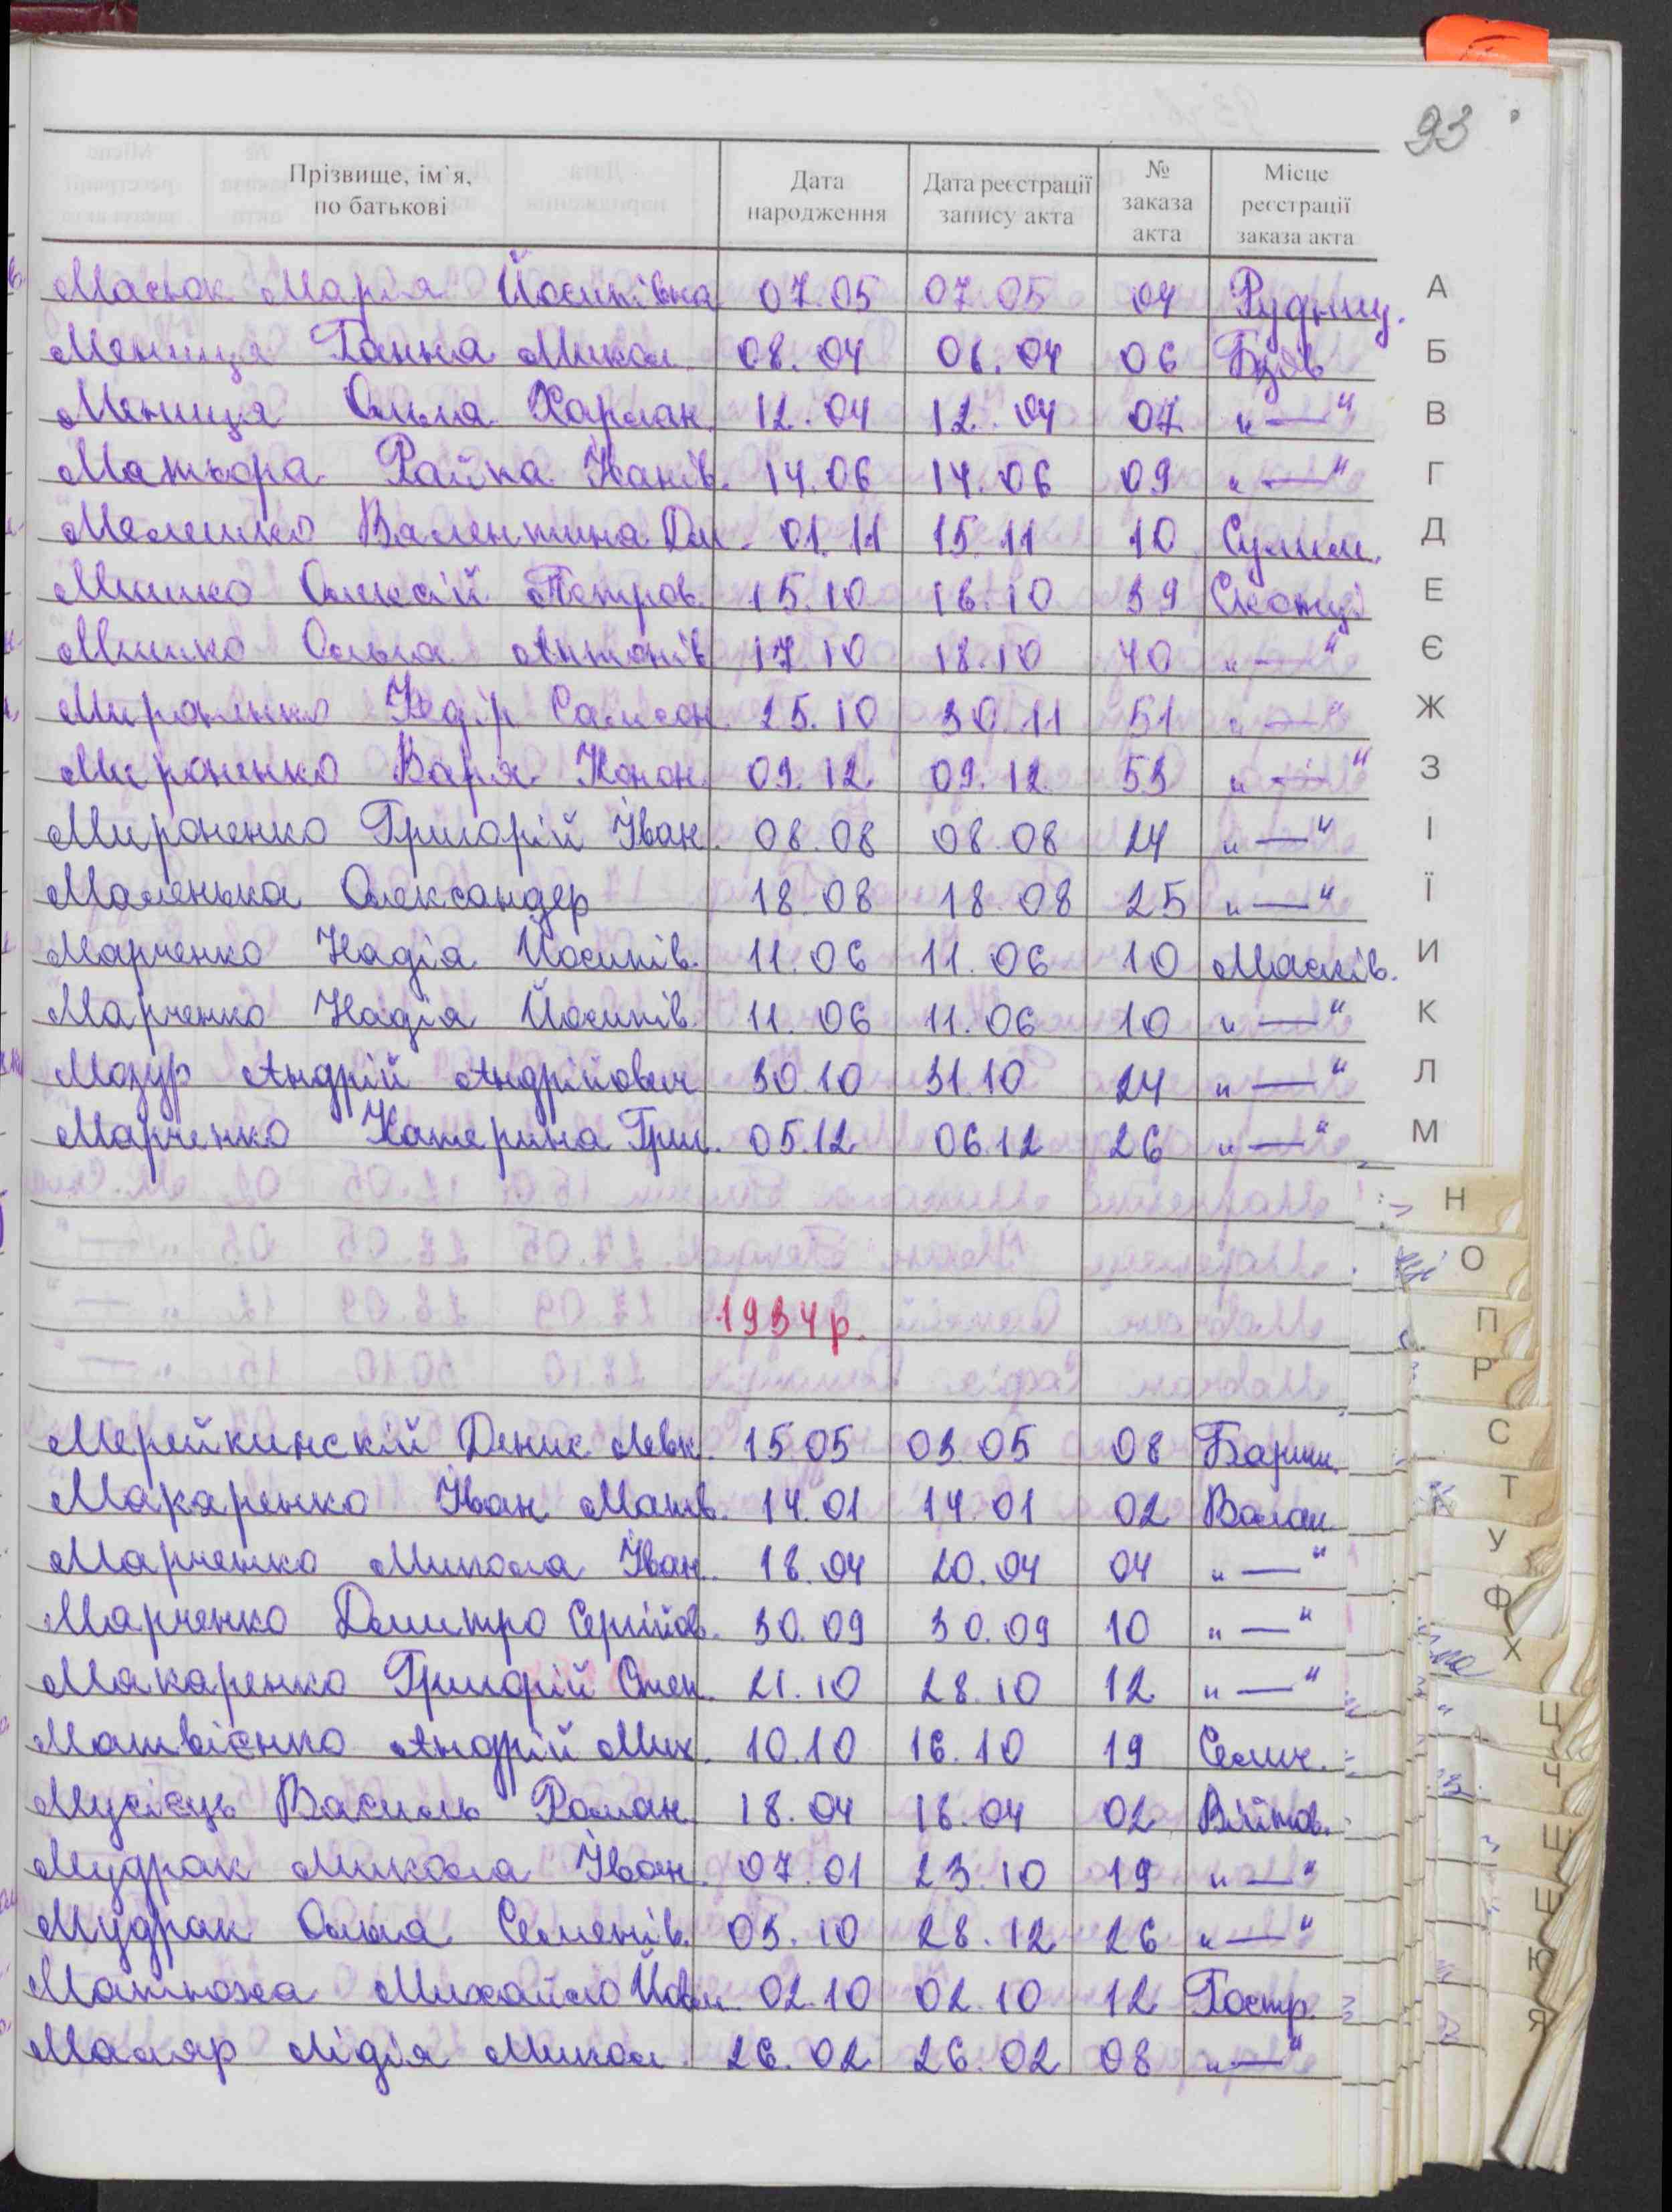 93
Прізвище, ім`я, по батькові Дата народження Дата реєстрації запису акта № заказа акта Місце реєстрації заказа акта
Масюк Марія Йосипівна 07.05 07.05 04 Рудниц.
Мениця Ганна Микол. 08.04 08.04 06 Бзів
Мениця Ольга Харлан. 12.04 12.04 07 „—“
Матюра Раїна Іванів. 14.06 14.06 09 „—“
Мелешко Валентина Дм. 01.11 15.11 10 Сулим.
Мишко Олексій Петров. 15.10 16.10 39 Скопці
Мишко Ольга Антонів 17.10 18.10 40 „—“
Мироненко Федір Самсон. 25.10 30.11 51 „—“
Мироненко Варя Конон. 09.12 09.12 53 „—“
Мироненко Григорій Іван. 08.08 08.08 24 „—“
Маленька Олександер 18.08 18.08 25 „—“
Марченко Надія Йосипів. 11.06 11.06 10 Масків.
Марченко Надія Йосипів. 11.06 11.06 10 „—“
Мозур Андрій Андрійович 30.10 31.10 24 „—“
Марченко Катерина Гри. 05.12 06.12 26 „—“
1934р.
Мерейкинскій Денис Левк. 15.05 03.05 08 Бариш.
Макаренко Іван Матв. 14.01 14.01 02 Волош.
Марченко Микола Іван. 18.04 20.04 04 „—“
Марченко Дмитро Сергійов. 30.09 30.09 10 „—“
Макаренко Григорій Олек. 21.10 28.10 12 „—“
Матвієнко Андрій Мих. 10.10 16.10 19 Селич.
Мусієць Василь Роман. 18.04 18.04 02 Війтов.
Мудрак Микола Іван. 07.01 23.10 19 „—“
Мудрак Ольга Семенів. 03.10 28.12 26 „—“
Матюха Михайло 02.10 02.10 12 Гостр.
Маляр Лідія Микол 26.02 26.02 08 „—“
А
Б
В
Г
Д
Е
Є
Ж
З
І
Ї
И
К
Л
М
Н
О
П
Р
С
Т
У
Ф
Х
Ц
Ч
Ш
Щ
Ю
Я